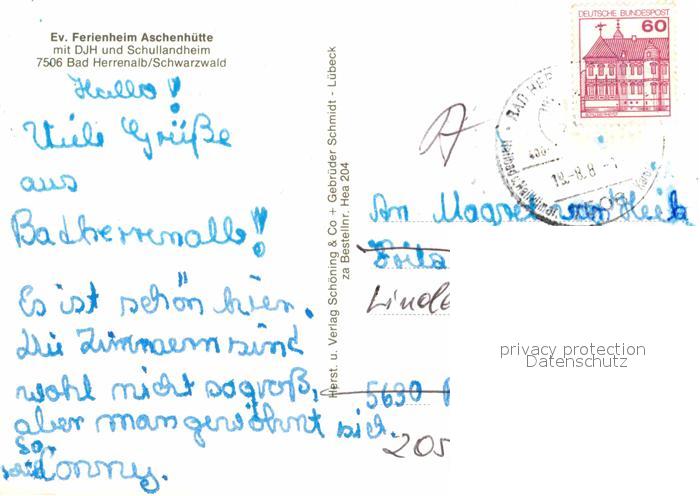 Ev. Ferienheim Aschenhütte
mit DJH und Schullandheim
7506 Bad Herrenalb/Schwarzwald
Hallo!
Viele Grüße
aus
Badherrenalb!
Es ist schön hier.
Die Zimmern sind
wohl nicht sogroß,
aber mangewöhnt sich.
So,
Conny.
Herst. u. Verlag Schöning & Co + Gebrüder Schmidt - Lübeck
za Bestellnr. Hea 204
DEUTSCHE BUNDESPOST
60
BAD HER
18.-8.8
An
5630
205
privacy protection
Datenschutz